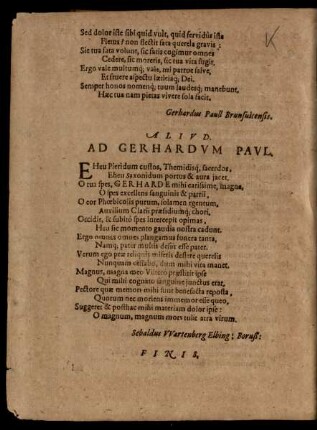 Sed dolor iste sibi quid vult, quid fervidus iste
Fletus? non flectit fata querela gravis;
Sic tua fata volunt, sic fatis cogimur omnes
Cedere, sic moreris, sic tua vita fugit.
Ergo vale multumq; vale, mi patrue salve,
Et fruere aspectu lætitiaq; Dei.
Semper honos nomenq; tuum laudesq; manebunt,
Hæc tua nam pietas vivere sola facit.
Gerhardus Pauli Brunsuicensis.
ALIVD.
AD GERHARDVM PAVL.
EHeu Pieridum custos, Themidisq; sacerdos,
Eheu Saxonidum portus & aura jacet.
O rus spes, GERHARDE mihi carissime, magna,
O spes excellens sanguinis & patrii,
O cor Phœbicolis purum, solamen egentum,
Auxilium Clarii præsidiumq; chori,
Occidit, & subitò spes intercepit opimas,
Hau sic momento gaudia nostra cadunt.
Ergo omnes plangamus funera tanta,
Namq; patur multis desiit esse pater.
Verum ego præ reliquis misellis deflere querelis
Nunquam cessabo, dum mihi vita manet.
Magnus, magna meo Vitreo præstitit ipse
Qui mihi cognato sanguine junctus erat,
Pectore quæ memori mihi sunt benefacta reposta,
Quorum nec moriens immemor esse queo,
Suggeret & posthac mihi materiam dolor ipse:
O magnum, magnum mors tulit atra virum.
Sebaldus VVartenberg Elbing: Boruss:
FINIS.